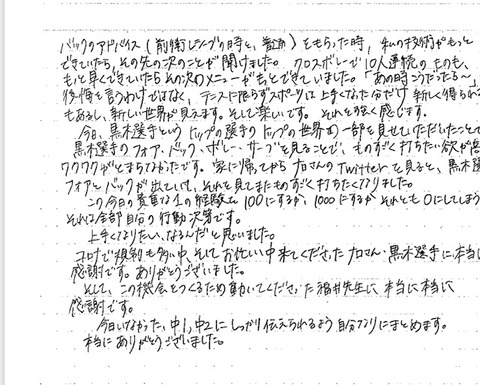 バックのアドバイス(前衛レシーブの時と、普通)をもらった時、私の技術がもっと
できていたら、その先の次のことが聞けました。クロスボレーで10人連続のものも、
もっと早くできていたらその次のメニューがもっとできていました。「あの時こうだったら〜」
後悔を言うわけではなく、テニスに限らずスポーツは上手くなった分だけ新しく得られる
もあるし、新しい世界が見えます。そして楽しいです。それを強く感じます。
今日、黒木選手というトップの選手のトップの世界の一部を見せていただいたことで
黒木選手のフォア・バック・ボレー・サーブを見ることで、ものすごく打ちたい欲が
ワクワクがとまらなかったです。家に帰ってから プロさんのTwitterを見ると、黒木選
フォアとバックが出ていて、それを見てまたものすごく打ちたくなりました。
この今日の貴重な1の経験を100にするか、1000にするか それとも0にしてしまう
それは全部自分の行動次第です。
上手くなりたい、なるんだと思いました。
コロナで規制も多い中、そしてお忙しい中来てくださった プロさん・黒木選手に本当に
感謝です。ありがとうございました。
そして、この機会をつくるため動いてくださった福井先生に本当に本当に
感謝です。
今日いなかった、中1,中2にしっかり伝えられるよう自分なりにまとめます。
本当にありがとうございました。